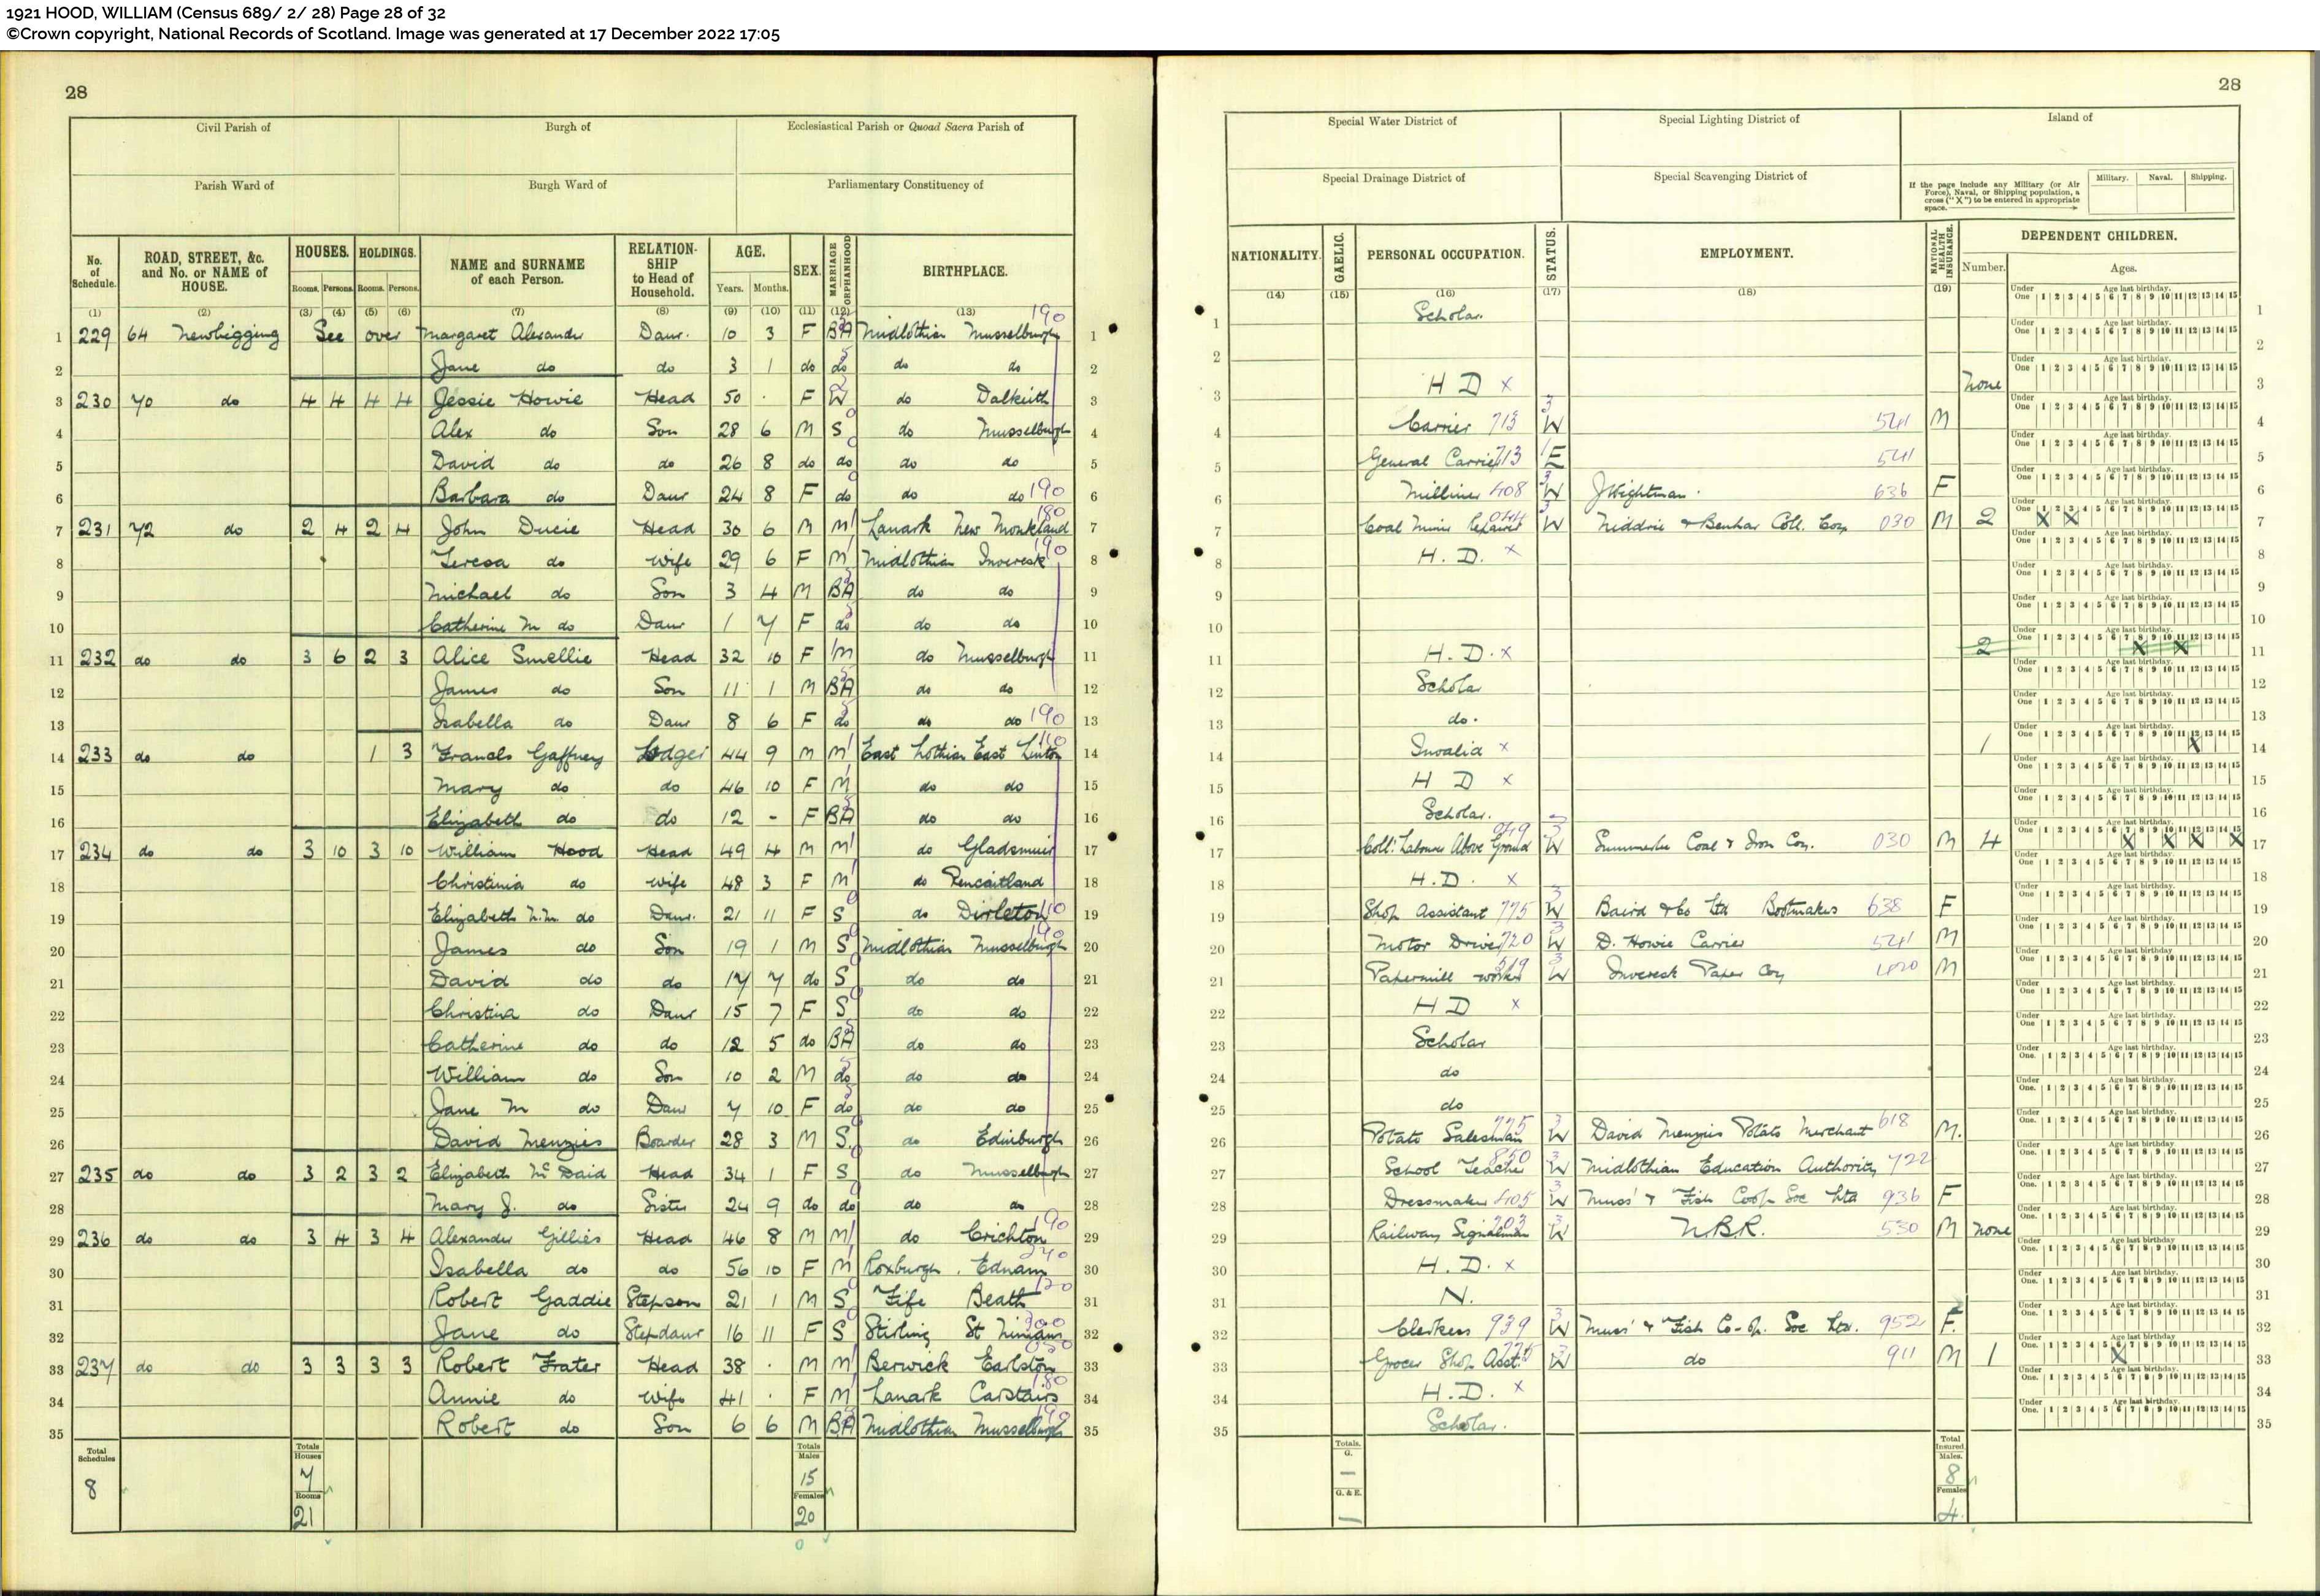 1921 HOOD, WILLIAM (Census 689/ 2/ 28) Page 28 of 32
©Crown copyright, National Records of Scotland. Image was generated at 17 December 2022 17:05
28
28
Civil Parish of Burgh of Ecclesiastical Parish or Quoad Sacra Parish of
Parish Ward of Burgh Ward of Parliamentary Constituency of
Special Water District of Special Lighting District of Island of
Special Drainage District of Special Scavenging District of
If the page include any Military (or Air Force), Naval, or Shipping population, a cross ("X") to be entered in appropriate space. Military. Naval. Shipping.
No. of Schedule. ROAD, STREET, &c. and No. or NAME of HOUSE. HOUSES. Rooms. Persons. HOLDINGS. Rooms. Persons. NAME and SURNAME of each Person. RELATION-SHIP to Head of Household. AGE. Years. Months. SEX. MARRIAGE ORPHANHOOD BIRTHPLACE.
NATIONALITY. GAELIC. PERSONAL OCCUPATION. STATUS. EMPLOYMENT. NATIONAL HEALTH INSURANCE. DEPENDENT CHILDREN. Number. Ages.
(1) (2) (3) (4) (5) (6) (7) (8) (9) (10) (11) (12) (13) (14) (15) (16) (17) (18) (19)
Under One 1 2 3 4 5 6 7 8 9 10 11 12 13 14 15 Age last birthday.
1 229 64 Newbigging See over Margaret Alexander Daur. 10 3 F BA Midlothian Musselburgh 190 Scholar. 1
2 Jane do do 3 1 do do do do 2
3 230 70 do 4 4 4 4 Jessie Howie Head 50 . F W do Dalkeith H D x None 3
4 Alex do Son 28 6 M S do Musselburgh Carrier 713 W 541 M 4
5 David do do 26 8 do do do do General Carrier 713 E 541 5
6 Barbara do Daur 24 8 F do do do 190 Milliner 408 W J Wightman. 636 F 6
7 231 72 do 2 4 2 4 John Ducie Head 30 6 M M Lanark New Monkland 180 Coal Miner Repairer 044 W Niddrie & Benhar Coll. Coy 030 M 2 X X 7
8 Teresa do Wife 29 6 F M Midlothian Inveresk 190 H. D. x 8
9 Michael do Son 3 4 M BA do do 9
10 Catherine M do Daur 1 7 F do do do 10
11 232 do do 3 6 2 3 Alice Smellie Head 32 10 F M do Musselburgh H. D. x 2 X X 11
12 James do Son 11 1 M BA do do Scholar 12
13 Isabella do Daur 8 6 F do do do 190 do. 13
14 233 do do 1 3 Francis Gaffney Lodger 44 9 M M East Lothian East Linton 110 Invalid x 1 X 14
15 Mary do do 46 10 F M do do H D x 15
16 Elizabeth do do 12 - F BA do do Scholar. 16
17 234 do do 3 10 3 10 William Hood Head 49 4 M M do Gladsmuir Coll: Labourer Above Ground 049 W Summerlee Coal & Iron Coy. 030 M 4 X X X X 17
18 Christinia do Wife 48 3 F M do Pencaitland H. D. x 18
19 Elizabeth N.M. do Daur. 21 11 F S do Dirleton 110 Shop Assistant 775 W Baird & Co Ltd Bootmakers 638 F 19
20 James do Son 19 1 M S Midlothian Musselburgh 190 Motor Driver 720 W D. Howie Carrier 541 M 20
21 David do do 17 7 do S do do Papermill worker 519 W Inveresk Paper Coy M 21
22 Christina do Daur 15 7 F S do do H D x 22
23 Catherine do do 12 5 do BA do do Scholar 23
24 William do Son 10 2 M do do do do 24
25 Jane M do Daur 7 10 F do do do do 25
26 David Menzies Boarder 28 3 M S do Edinburgh Potato Salesman 775 W David Menzies Potato Merchant 618 M. 26
27 235 do do 3 2 3 2 Elizabeth Mc Daid Head 34 1 F S do Musselburgh School Teacher 850 W Midlothian Education Authority 722 27
28 Mary J. do Sister 24 9 do do do do Dressmaker 405 W Muss' & Fish Coop Soc Ltd 936 F 28
29 236 do do 3 4 3 4 Alexander Gillies Head 46 8 M M do Crichton 190 Railway Signalman 703 W N.B.R. 530 M None 29
30 Isabella do do 56 10 F M Roxburgh . Ednam 240 H. D. x 30
31 Robert Gaddie Stepson 21 1 M S Fife Beath 120 N. 31
32 Jane do Stepdaur 16 11 F S Stirling St Ninians 300 Clerkess 939 W Muss' & Fish Co-op. Soc Ltd. 952 F. 32
33 237 do do 3 3 3 3 Robert Frater Head 38 . M M Berwick Earlston 050 Grocer Shop Asst: 775 W do 911 M 1 X 33
34 Annie do Wife 41 . F M Lanark Carstairs 180 H. D. x 34
35 Robert do Son 6 6 M BA Midlothian Musselburgh 190 Scholar. 35
Total Schedules 8 Totals Houses 7 Rooms 21 Totals Males 15 Females 20
Totals. G. G. & E. Total Insured. Males. 8 Females 4